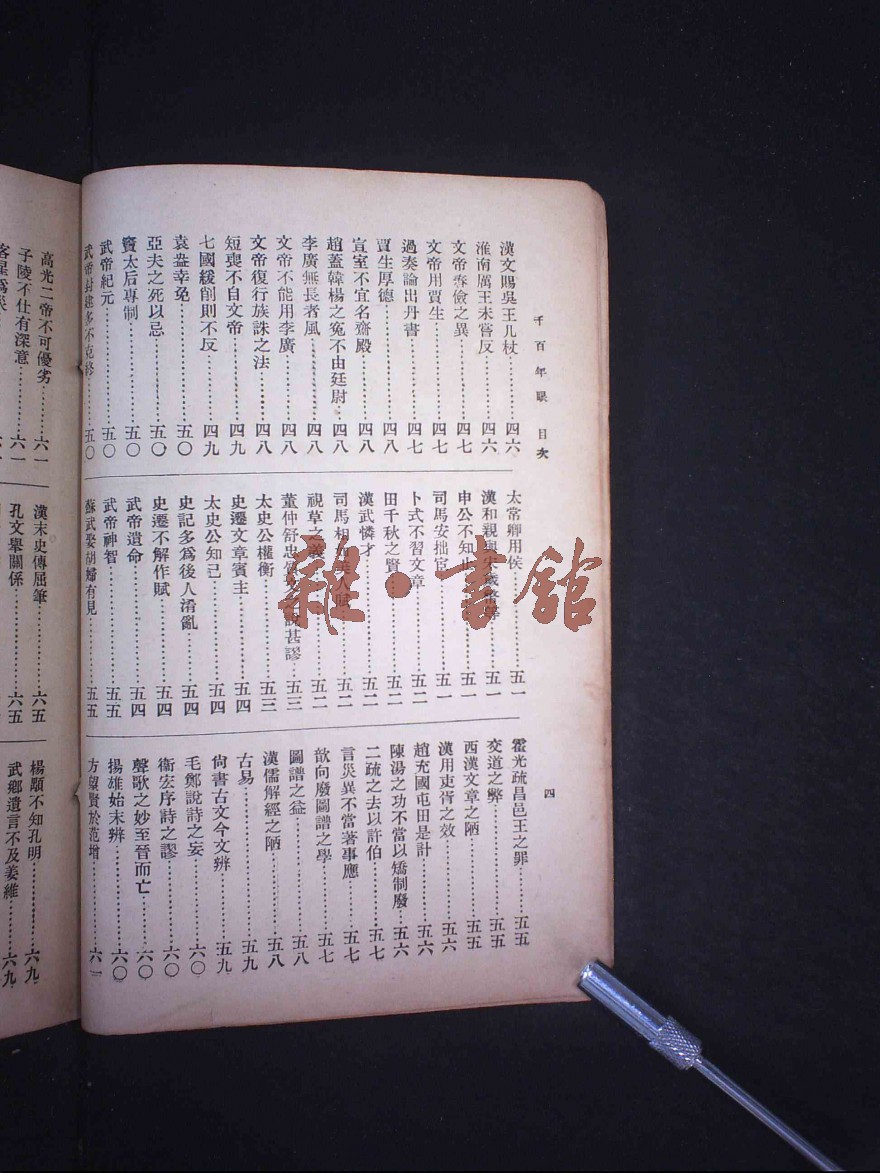 千百年眼 目次
四
漢文賜吳王几杖⋯⋯四六
淮南厲王未嘗反⋯⋯四六
文帝奢儉之異⋯⋯四七
文帝用賈生⋯⋯四七
過秦論出丹書⋯⋯四七
賈生厚德⋯⋯四八
宣室不宜名齋殿⋯⋯四八
趙蓋韓楊之寃不由廷尉⋯⋯四八
李廣無長者風⋯⋯四八
文帝不能用李廣⋯⋯四八
文帝復行族誅之法⋯⋯四八
短喪不自文帝⋯⋯四九
七國緩削則不反⋯⋯四九
袁盎幸免⋯⋯五〇
亞夫之死以忌⋯⋯五〇
竇太后專制⋯⋯五〇
武帝紀元⋯⋯五〇
武帝封建多不克終⋯⋯五〇
太常卿用侯⋯⋯五一
漢和親與宋歲幣⋯⋯五一
申公不知止⋯⋯五一
司馬安拙宦⋯⋯五一
卜式不習文章⋯⋯五二
田千秋之賢⋯⋯五二
漢武憐才⋯⋯五二
司馬相如美人賦⋯⋯五二
視草之義⋯⋯五二
董仲舒忠質文之說甚謬⋯⋯五三
太史公權衡⋯⋯五三
史遷文章賓主⋯⋯五四
太史公知己⋯⋯五四
史記多為後人淆亂⋯⋯五四
史遷不解作賦⋯⋯五四
武帝遺命⋯⋯五四
武帝神智⋯⋯五五
蘇武娶胡婦有見⋯⋯五五
霍光疏昌邑王之罪⋯⋯五五
交道之弊⋯⋯五五
西漢文章之陋⋯⋯五五
漢用吏胥之效⋯⋯五六
趙充國屯田是計⋯⋯五六
陳湯之功不當以矯制廢⋯⋯五六
二疏之去以許伯⋯⋯五七
言災異不當著事應⋯⋯五七
歆向廢圖譜之學⋯⋯五七
圖譜之益⋯⋯五八
漢儒解經之陋⋯⋯五八
古易⋯⋯五九
尙書古文今文辨⋯⋯五九
毛鄭說詩之妄⋯⋯六〇
衞宏序詩之謬⋯⋯六〇
聲歌之妙至晉而亡⋯⋯六〇
揚雄始末辨⋯⋯六〇
方望賢於范增⋯⋯六一
高光二帝不可優劣⋯⋯六一
子陵不仕有深意⋯⋯六一
客星為災
漢末史傳屈筆⋯⋯六五
孔文舉關係⋯⋯六五
楊顒不知孔明⋯⋯六九
武鄉遺言不及姜維⋯⋯六九
雜·書館